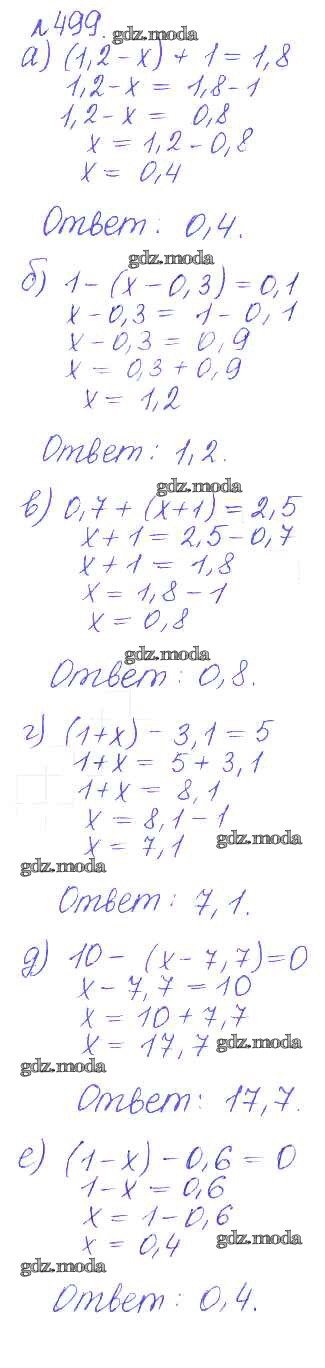 №499.
gdz.moda
а) (1,2-x) + 1 = 1,8
1,2-x = 1,8-1
1,2-x = 0,8
x = 1,2-0,8
x = 0,4
Ответ: 0,4.
gdz.moda
б) 1-(x-0,3) = 0,1
x-0,3 = 1-0,1
x-0,3 = 0,9
x = 0,3+0,9
x = 1,2
Ответ: 1,2.
gdz.moda
в) 0,7 + (x+1) = 2,5
x+1 = 2,5-0,7
x+1 = 1,8
x = 1,8-1
x = 0,8
gdz.moda
Ответ: 0,8.
г) (1+x) - 3,1 = 5
1+x = 5+3,1
1+x = 8,1
x = 8,1-1
gdz.moda
x = 7,1
gdz.moda
Ответ: 7,1.
д) 10 - (x-7,7) = 0
x-7,7 = 10
x = 10+7,7
x = 17,7
gdz.moda
gdz.moda
Ответ: 17,7.
е) (1-x) - 0,6 = 0
1-x = 0,6
x = 1-0,6
x = 0,4
gdz.moda
gdz.moda
Ответ: 0,4.